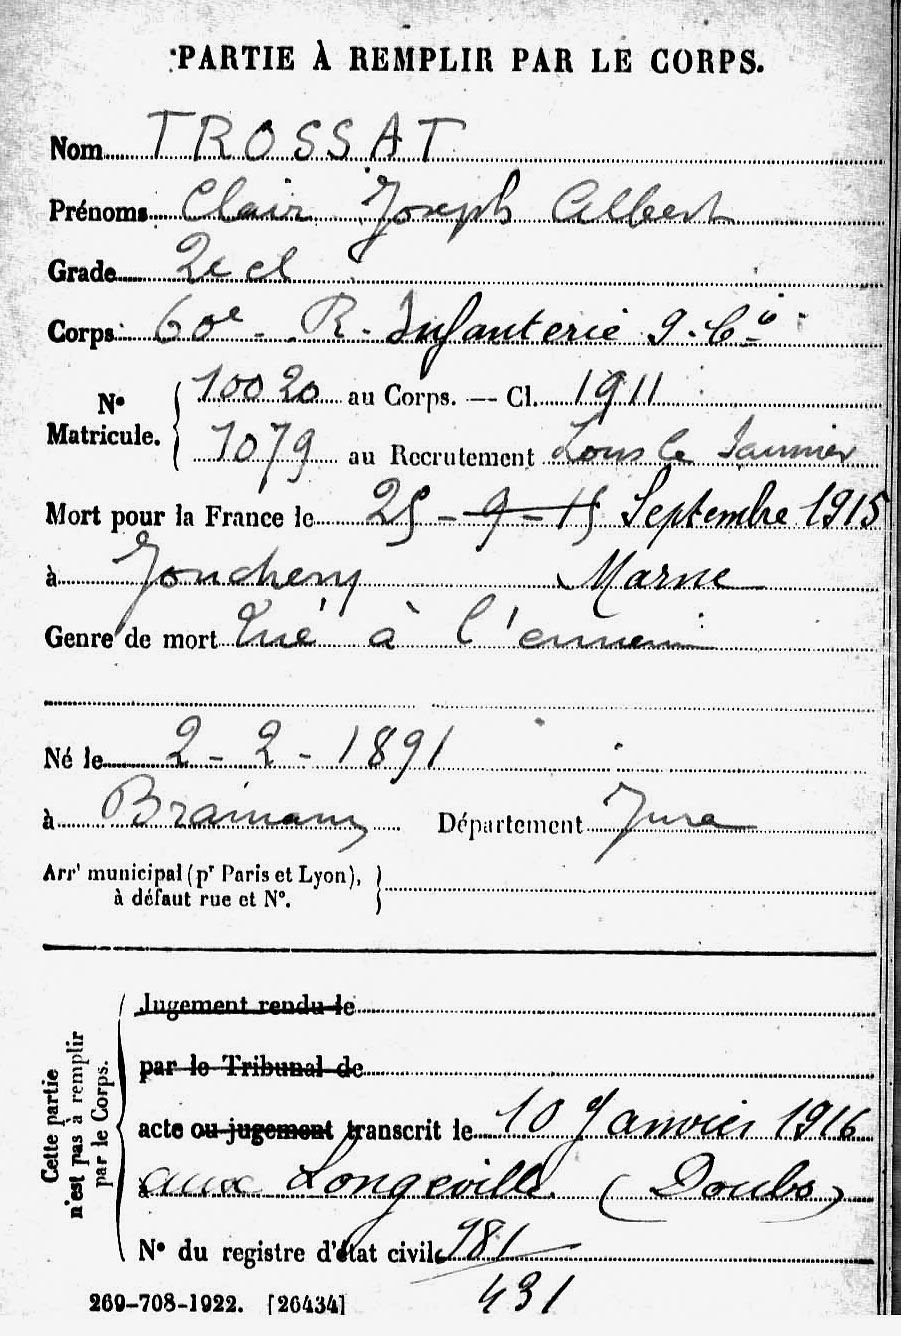 PARTIE À REMPLIR PAR LE CORPS.
Nom TROSSAT
Prénoms Clair Joseph Albert
Grade 2e cl
Corps 60e - R. Infanterie 9. Cie
N° Matricule. 10020 au Corps. — Cl. 1911
1079 au Recrutement Lons le Saunier
Mort pour la France le 25 - 9 - 15 Septembre 1915
à Jonchery Marne
Genre de mort Tué à l'ennemi
Né le 2 - 2 - 1891
à Département Jura
Arrt municipal (pr Paris et Lyon),
à défaut rue et N°.
Cette partie n'est pas à remplir par le Corps.
Jugement rendu le
par le Tribunal de
acte ou jugement transcrit le 10 Janvier 1916
à aux Longeville (Doubs)
N° du registre d'état civil 981
431
269-708-1922. [26434]